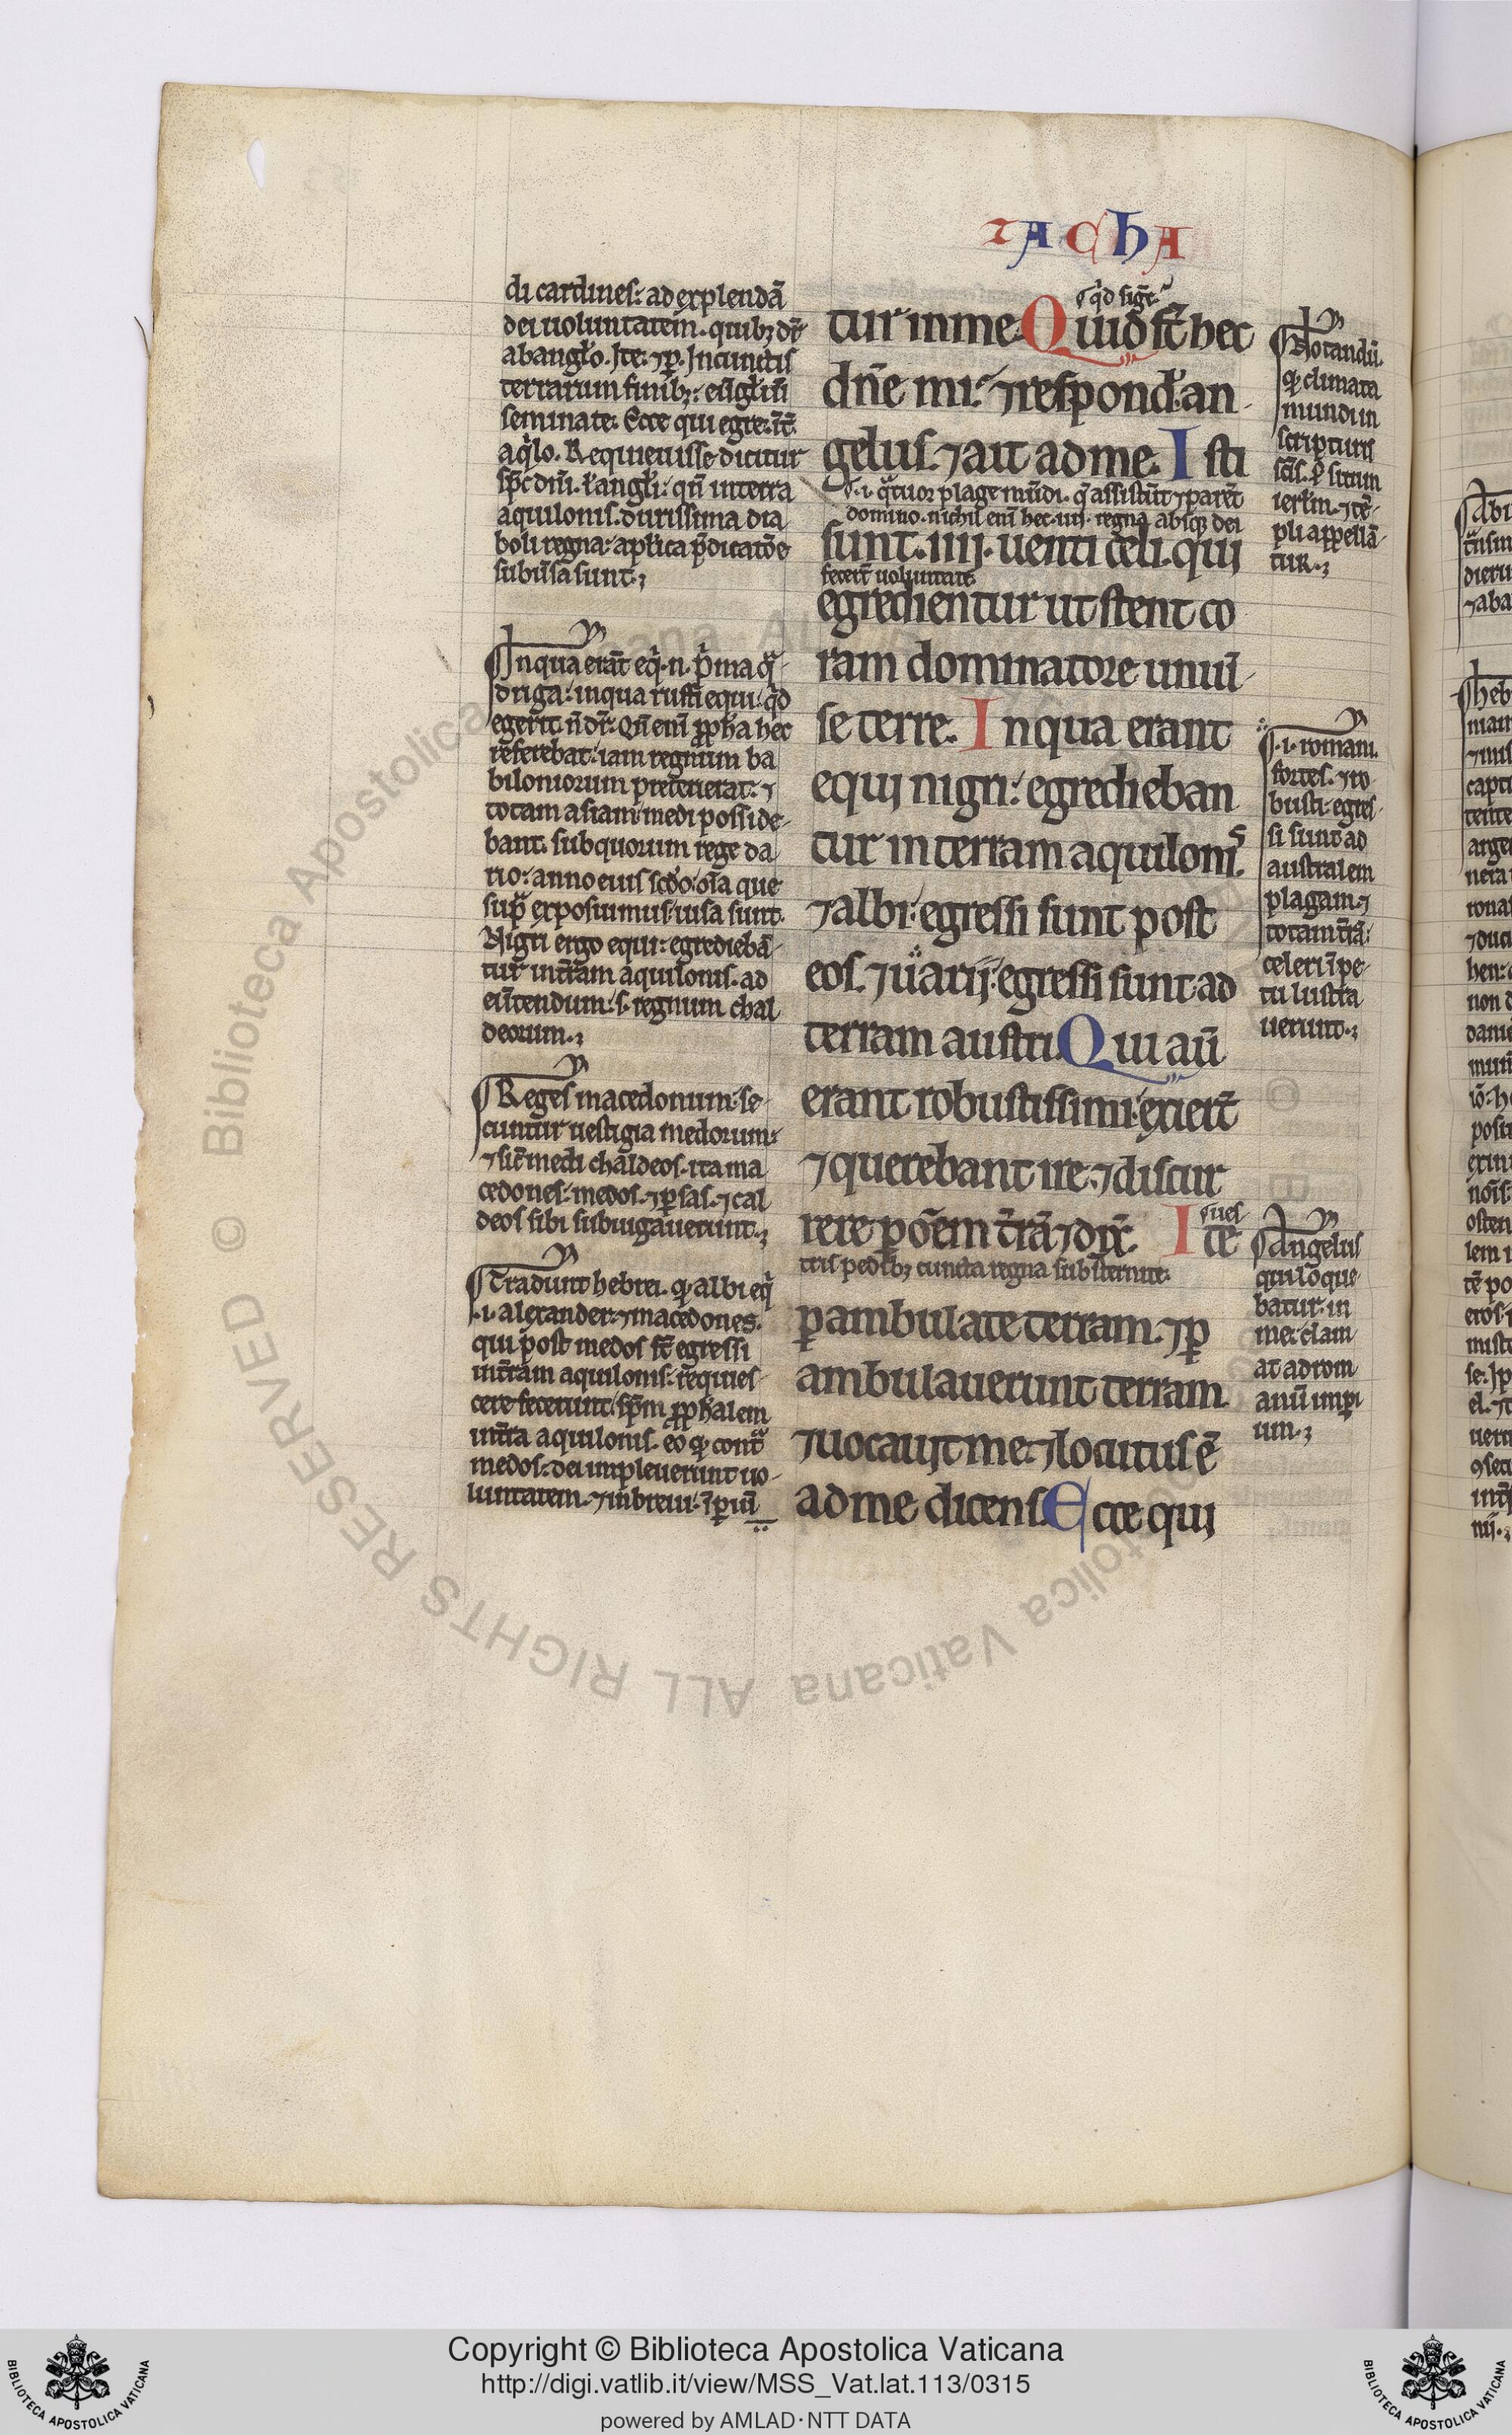 ZACHA
di cardines: ad explendā
dei uoluntatem. quibꝫ dr̄
ab anglo. Ite. ⁊ ꝑ. In cunctis
terrarum finibꝫ: eūgliū
seminate. Ecce qui egre. ī t̄.
aqͥlo. Requieuisse dicitur
sp̄c dn̄i. ł angli: qn̄ in terra
aquilonis. durissima dia
boli regna: aplica p̄dicatōe
subusa sunt.
In qua erāt eqͥ. n. pͥma qͣ
driga: in qua ruffi equi: qͥd
egerīt n̄ dr̄. Qn̄ enī ꝓpha hec
referebat: iam regnum ba
biloniorum preterierat: ⁊
totam asiam medi posside
bant. sub quorum rege da
rio: anno eius scdo: oīa que
supͣ exposuimus: uisa sunt.
Nigri ergo equi: egrediebā
tur in t̄ram aquilonis. ad
eūtendum .s. regnum chal
deorum.
Reges macedonum: se
cuntur uestigia medorum:
⁊ sic̄ medi chaldeos. ita ma
cedones: medos. ⁊ ꝑsas. ⁊ cal
deos sibi subiugauerunt.
Tradunt hebrei. ꝙ albi eqͥ
.i. alexander: ⁊ macedones.
qui post medos sc̄ egressi
in t̄ram aquilonis: requies
cere fecerunt sp̄m ꝓphalem
in t̄ra aquilonis. eo ꝙ contͣ
medos: dei impleuerunt uo
luntatem. ⁊ in breui: īꝑiū
qͥd sigͫ.
tur in me. Quid sc̄ hec
dn̄e mi: ⁊ respond. an
gelus. ⁊ ait ad me. Isti
.i. qͣtuor plage mūdi. q̄ assistūt ⁊ parēt
domino. nichil enī hec .iiij. regna absqꝫ dei
sunt .iiij. uenti celi. qui
fecerūt uoluntate.
egredientur ut stent co
ram dominatore uniū
se terre. In qua erant
equi nigri: egredieban
tur in terram aquilonis.
⁊ albi: egressi sunt post
eos. ⁊ uarij: egressi sunt ad
terram austri. Qui aū
erant robustissimi: exierūt
⁊ querebant ire. ⁊ discur
rere ꝑ oēm t̄rā ⁊ dix̄. Ite
ues
tris pedibꝫ cuncta regna substernite.
ꝑambulate terram. ⁊ ꝑ
ambulauerunt terram
⁊ uocauit me: ⁊ locutus ē
ad me dicens. Ecce qui
Notandū
ꝙ climata
mundi in
scripturis
sc̄is. ꝑ situm
ierłm. ⁊ tē
pli appellā
tur.
.i. romani.
fortes. ⁊ ro
busti: egres
si sunt ad
australem
plagam. ⁊
totam t̄rā:
celeri īpe
tu lustra
uerunt.
Angelus
qui loque
batur in
me: clam
at ad rom
anū imꝑi
um.
Copyright © Biblioteca Apostolica Vaticana
http://digi.vatlib.it/view/MSS_Vat.lat.113/0315
powered by AMLAD·NTT DATA
BIBLIOTECA APOSTOLICA VATICANA
BIBLIOTECA APOSTOLICA VATICANA